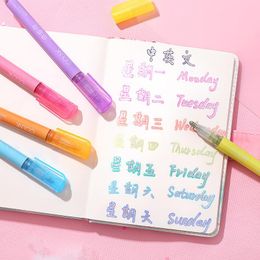 中英文
星期一 Monday
星期二 Tuesday
星期三 Wed
星期四 Thursday
星期五 Friday
星期六 Saturday
星期天 Sunday